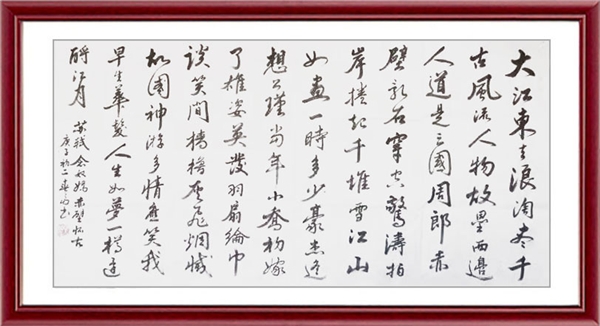 大江東去浪淘盡千
古風流人物故壘西邊
人道是三國周郎赤
壁乱石穿空驚濤拍
岸捲起千堆雪江山
如畫一時多少豪杰遙
想公瑾當年小喬初嫁
了雄姿英發羽扇綸巾
談笑間檣櫓灰飛烟滅
故國神游多情應笑我
早生華髮人生如夢一樽還
酹江月
蘇軾念奴嬌赤壁懷古
庚子初